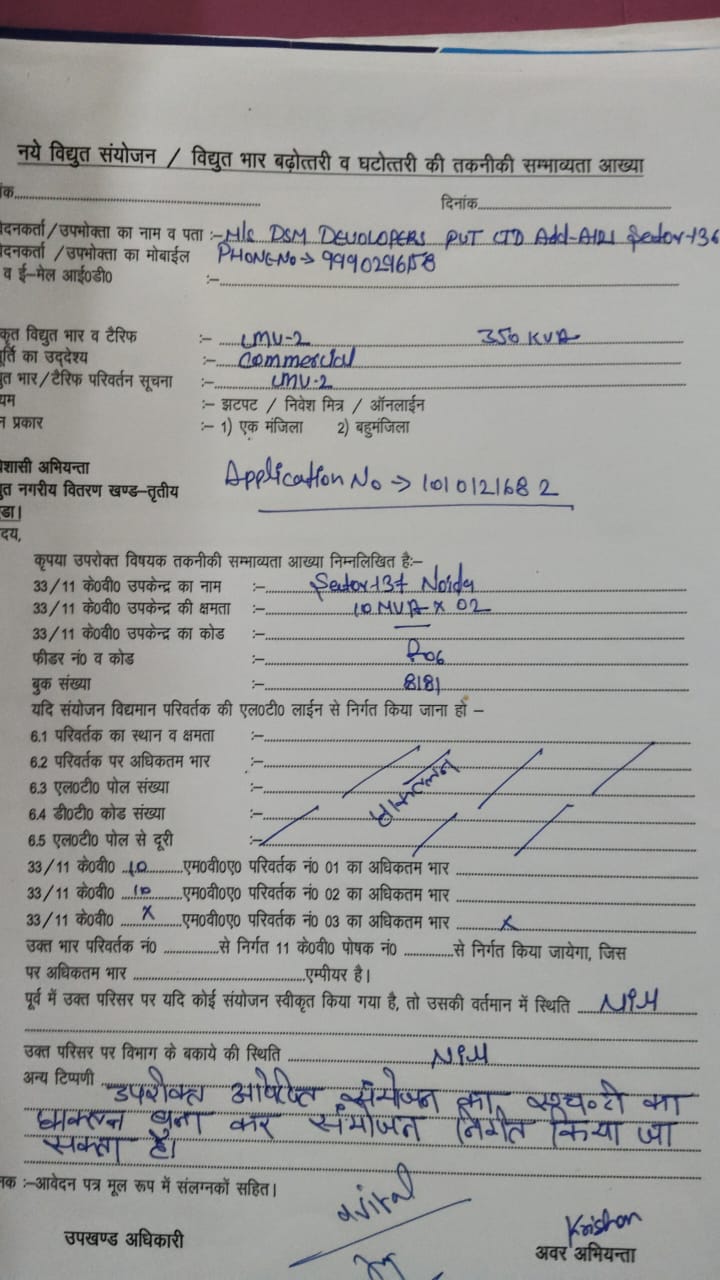 नये विद्युत संयोजन / विद्युत भार बढ़ोत्तरी व घटोत्तरी की तकनीकी सम्भाव्यता आख्या
ंक.................... दिनांक....................
वेदनकर्ता/उपभोक्ता का नाम व पता :- M/s DSM DEVOLOPERS PVT LTD Add-A121 Sector-136
वेदनकर्ता /उपभोक्ता का मोबाईल PHONE-No→ 9990296158
व ई-मेल आई0डी0 :-
कृत विद्युत भार व टैरिफ :- LMV-2 350 KVA
पूर्ति का उद्देश्य :- Commercial
ुत भार/टैरिफ परिवर्तन सूचना :- LMV-2
यम :- झटपट / निवेश मित्र / ऑनलाईन
न प्रकार :- 1) एक मंजिला 2) बहुमंजिला
धिशासी अभियन्ता
ुत नगरीय वितरण खण्ड-तृतीय Application No → 1010121682
डा।
दय,
कृपया उपरोक्त विषयक तकनीकी सम्भाव्यता आख्या निम्नलिखित है:-
33/11 के0वी0 उपकेन्द्र का नाम :- Sector-137 Noida
33/11 के0वी0 उपकेन्द्र की क्षमता :- 10 MVA x 02
33/11 के0वी0 उपकेन्द्र का कोड :- —
फीडर नं0 व कोड :- R06
बुक संख्या :- 8181
यदि संयोजन विद्यमान परिवर्तक की एल0टी0 लाईन से निर्गत किया जाना हो –
6.1 परिवर्तक का स्थान व क्षमता :-
6.2 परिवर्तक पर अधिकतम भार :-
6.3 एल0टी0 पोल संख्या :- प्राक्कलन
6.4 डी0टी0 कोड संख्या :-
6.5 एल0टी0 पोल से दूरी :-
33/11 के0वी0 ..10..........एम0वी0ए0 परिवर्तक नं0 01 का अधिकतम भार ....................
33/11 के0वी0 ..10..........एम0वी0ए0 परिवर्तक नं0 02 का अधिकतम भार ....................
33/11 के0वी0 ....x........एम0वी0ए0 परिवर्तक नं0 03 का अधिकतम भार ........x............
उक्त भार परिवर्तक नं0 ...............से निर्गत 11 के0वी0 पोषक नं0 .............से निर्गत किया जायेगा, जिस
पर अधिकतम भार ....................एम्पीयर है।
पूर्व में उक्त परिसर पर यदि कोई संयोजन स्वीकृत किया गया है, तो उसकी वर्तमान में स्थिति ....
उक्त परिसर पर विभाग के बकाये की स्थिति ....................
अन्य टिप्पणी उपरोक्त संयोजन का का
प्राक्कलन बना कर संयोजन निर्गत किया जा
सकता है।
नक :-आवेदन पत्र मूल रूप में संलग्नकों सहित।
उपखण्ड अधिकारी
Krishan
अवर अभियन्ता